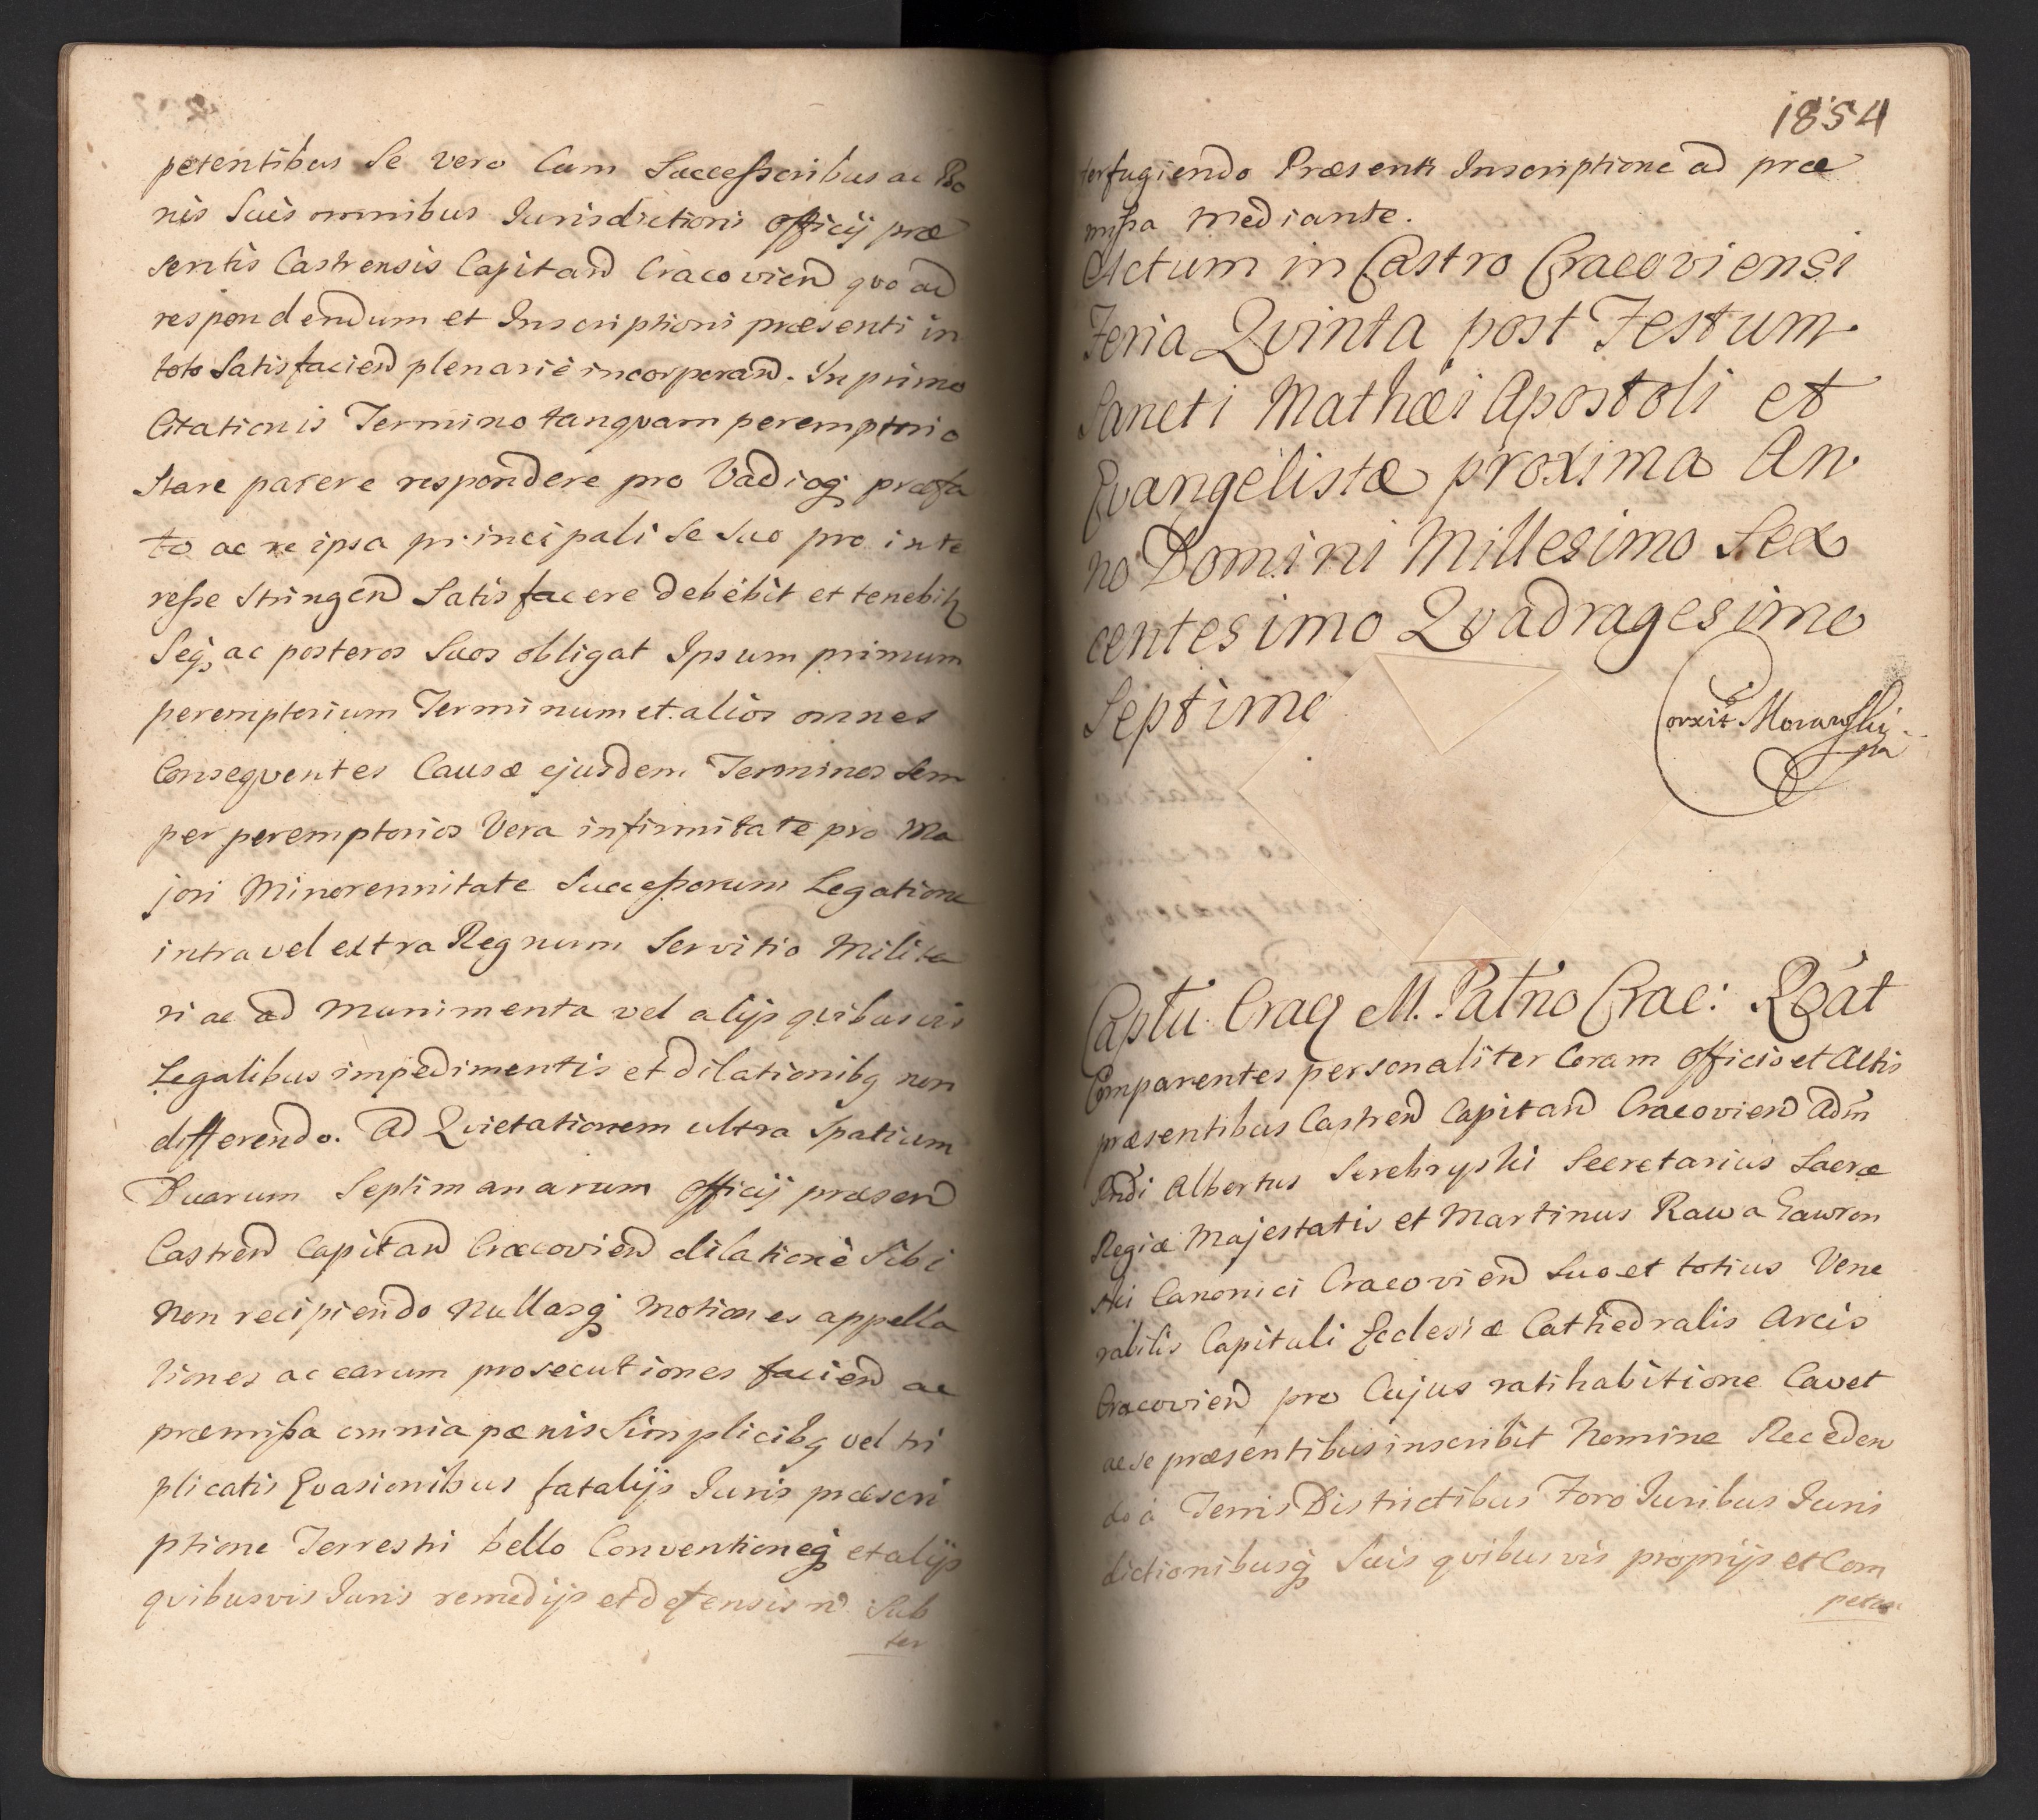 petentibus Se vero Cum Successoribus ac Bo
nis Suis omnibus Jurisdictioni officij præ
sentis Castrensis Capitan̄ Cracovien̄ quo ad
respondendum et Inscriptioni præsenti in
toto Satisfacien̄ plenariè incorporan̄. In primo
Citationis Termino tanqvam peremptorio
Stare parere respondere pro Vadioq; præfa
to ac re ipsa principali se suo pro inte
reße Stringen̄ Satisfacere debebit et tenebitꝫ
Seq; ac posteros Suos obligat Ipsum primum
peremptorium Terminum et alios omnes
Conseqventes Causæ ejusdem Terminos Sem
per peremptorios Vera infirmitate pro Ma
jori Minorennitate Succeßorum Legatione
intra vel extra Regnum Servitio Milita
ri ac ad munimenta vel alijs qvibusvis
Legalibus impedimentis et dilationibꝫ non
differendo. Ad Qvietationem ultra Spatium
Duarum Septimanarum officij præsen̄
Castren̄ Capitan̄ Cracovien̄ dilationè Sibi
Non recipiendo Nullasq; motiones appella
tiones ac earum prosecutiones facien̄ ac
præmißa omnia pænis Simplicibꝫ vel tri
plicatis Evasionibus fatalijs Juris præscri
ptione Terrestri bello Conventioneq; et alijs
qvibusvis Juris remedijs et defensis n̄ Sub
ter
1854
terfugiendo Præsenti Inscriptione ad præ
mißa mediante.
Actum in Castro Cracoviensi
Feria Qvinta post Festum
Sancti Mathæi Apostoli et
Evangelistæ proxima An
no Domini Millesimo Sex
centesimo Qvadragesimo
Septimo
orxit Morawski
mp
Captu. Cracꝫ M. Patno Crac: Roat
Comparentes personaliter Coram officio et Actis
præsentibus Castren̄ Capitan̄ Cracovien̄ Adm̄
Rndi Albertus Serebryski Secretarius Sacræ
Regiæ Majestatis et Martinus Rawa Gawron
ski Canonici Cracovien̄ Suo et totius Vene
rabilis Capituli Ecclesiæ Cathedralis Arcis
Cracovien̄ pro Cujus ratihabitione Cavet
ac se præsentibus inscribit Nomine Receden
do à Terris Districtibus Foro Juribus Juris
dictionibusq; Suis qvibusvis proprijs et Com
peten